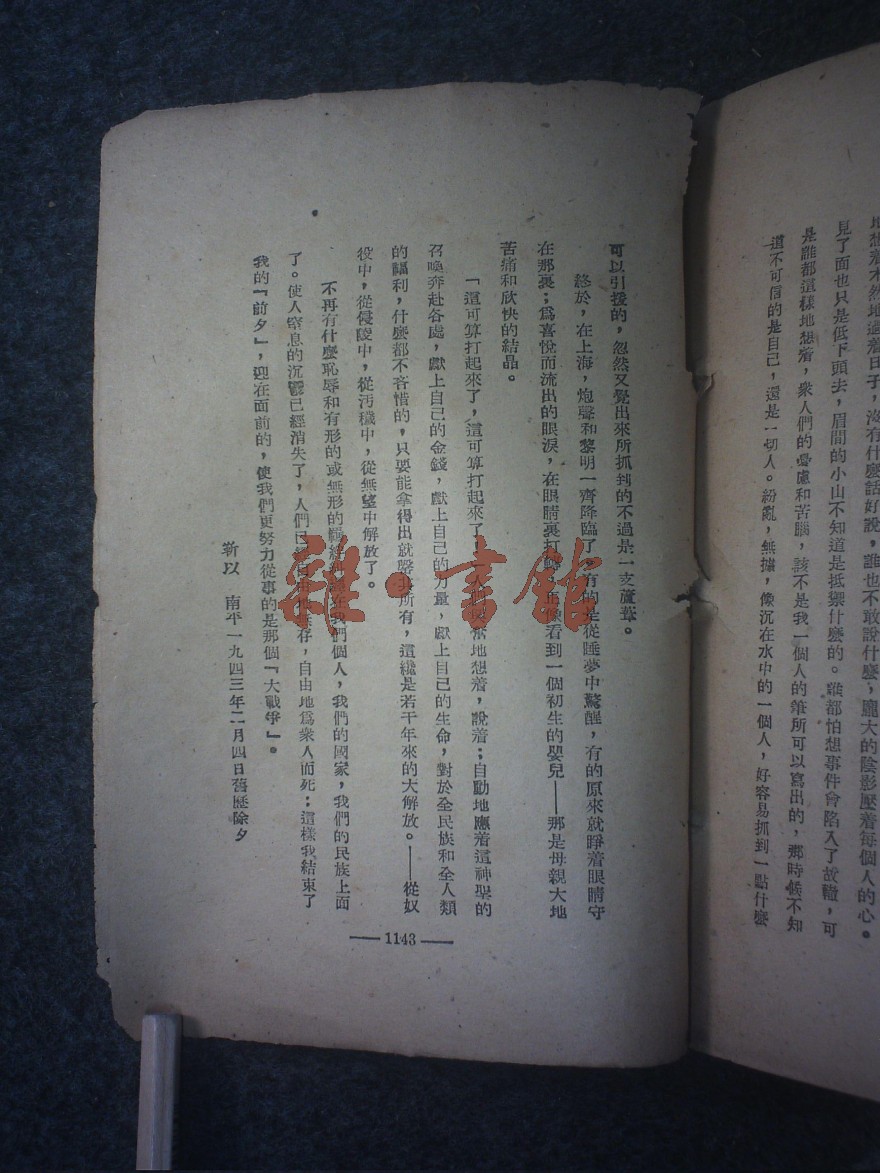 地想着木然地過着日子，沒有什麼話好說，誰也不敢說什麼，龐大的陰影壓着每個人的心。
見了面也只是低下頭去，眉間的小山不知道是抵禦什麼的。誰都怕想事件會陷入了故轍，可
是誰都這樣地想着，衆人們的憂慮和苦腦，該不是我一個人的筆所可以寫出的，那時候不知
道不可信的是自己，還是一切人。紛亂，無據，像沉在水中的一個人，好容易抓到一點什麼
可以引援的，忽然又覺出來所抓到的不過是一支蘆葦。
終於，在上海，炮聲和黎明一齊降臨了，有的是從睡夢中驚醒，有的原來就睜着眼睛守
在那裏；爲喜悅而流出的眼淚，在眼睛裏打，正像看到一個初生的嬰兒——那是母親大地
苦痛和欣快的結晶。
「這可算打起來了，這可算打起來了，」人們地想着，說着；自動地應着這神聖的
召喚奔赴各處，獻上自己的金錢，獻上自己的力量，獻上自己的生命，對於全民族和全人類
的福利，什麼都不吝惜的，只要能拿得出就罄其所有，這纔是若干年來的大解放。——從奴
役中，從侵陵中，從汚穢中，從無望中解放了。
不再有什麼恥辱和有形的或無形的在我們個人，我們的國家，我們的民族上面
了。使人窒息的沉鬱已經消失了，人們已經自由地生存，自由地爲衆人而死；這樣我結束了
我的「前夕」，現在面前的，使我們更努力從事的是那個「大戰爭」。
靳以　南平一九四三年二月四日舊歷除夕
—— 1143 ——
雜·書館